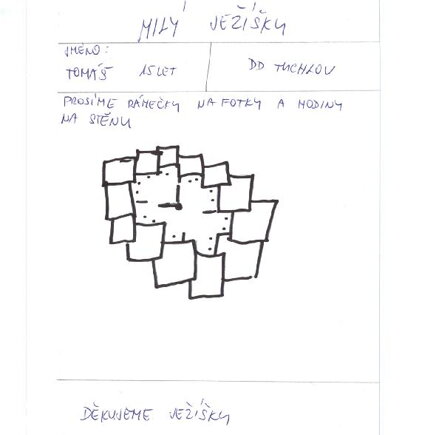 MILÝ JEŽÍŠKU
JMÉNO:
TOMÁŠ 15 LET DD TUCHLOV
PROSÍME RÁMEČKY NA FOTKY A HODINY
NA STĚNU
DĚKUJEME JEŽÍŠKU